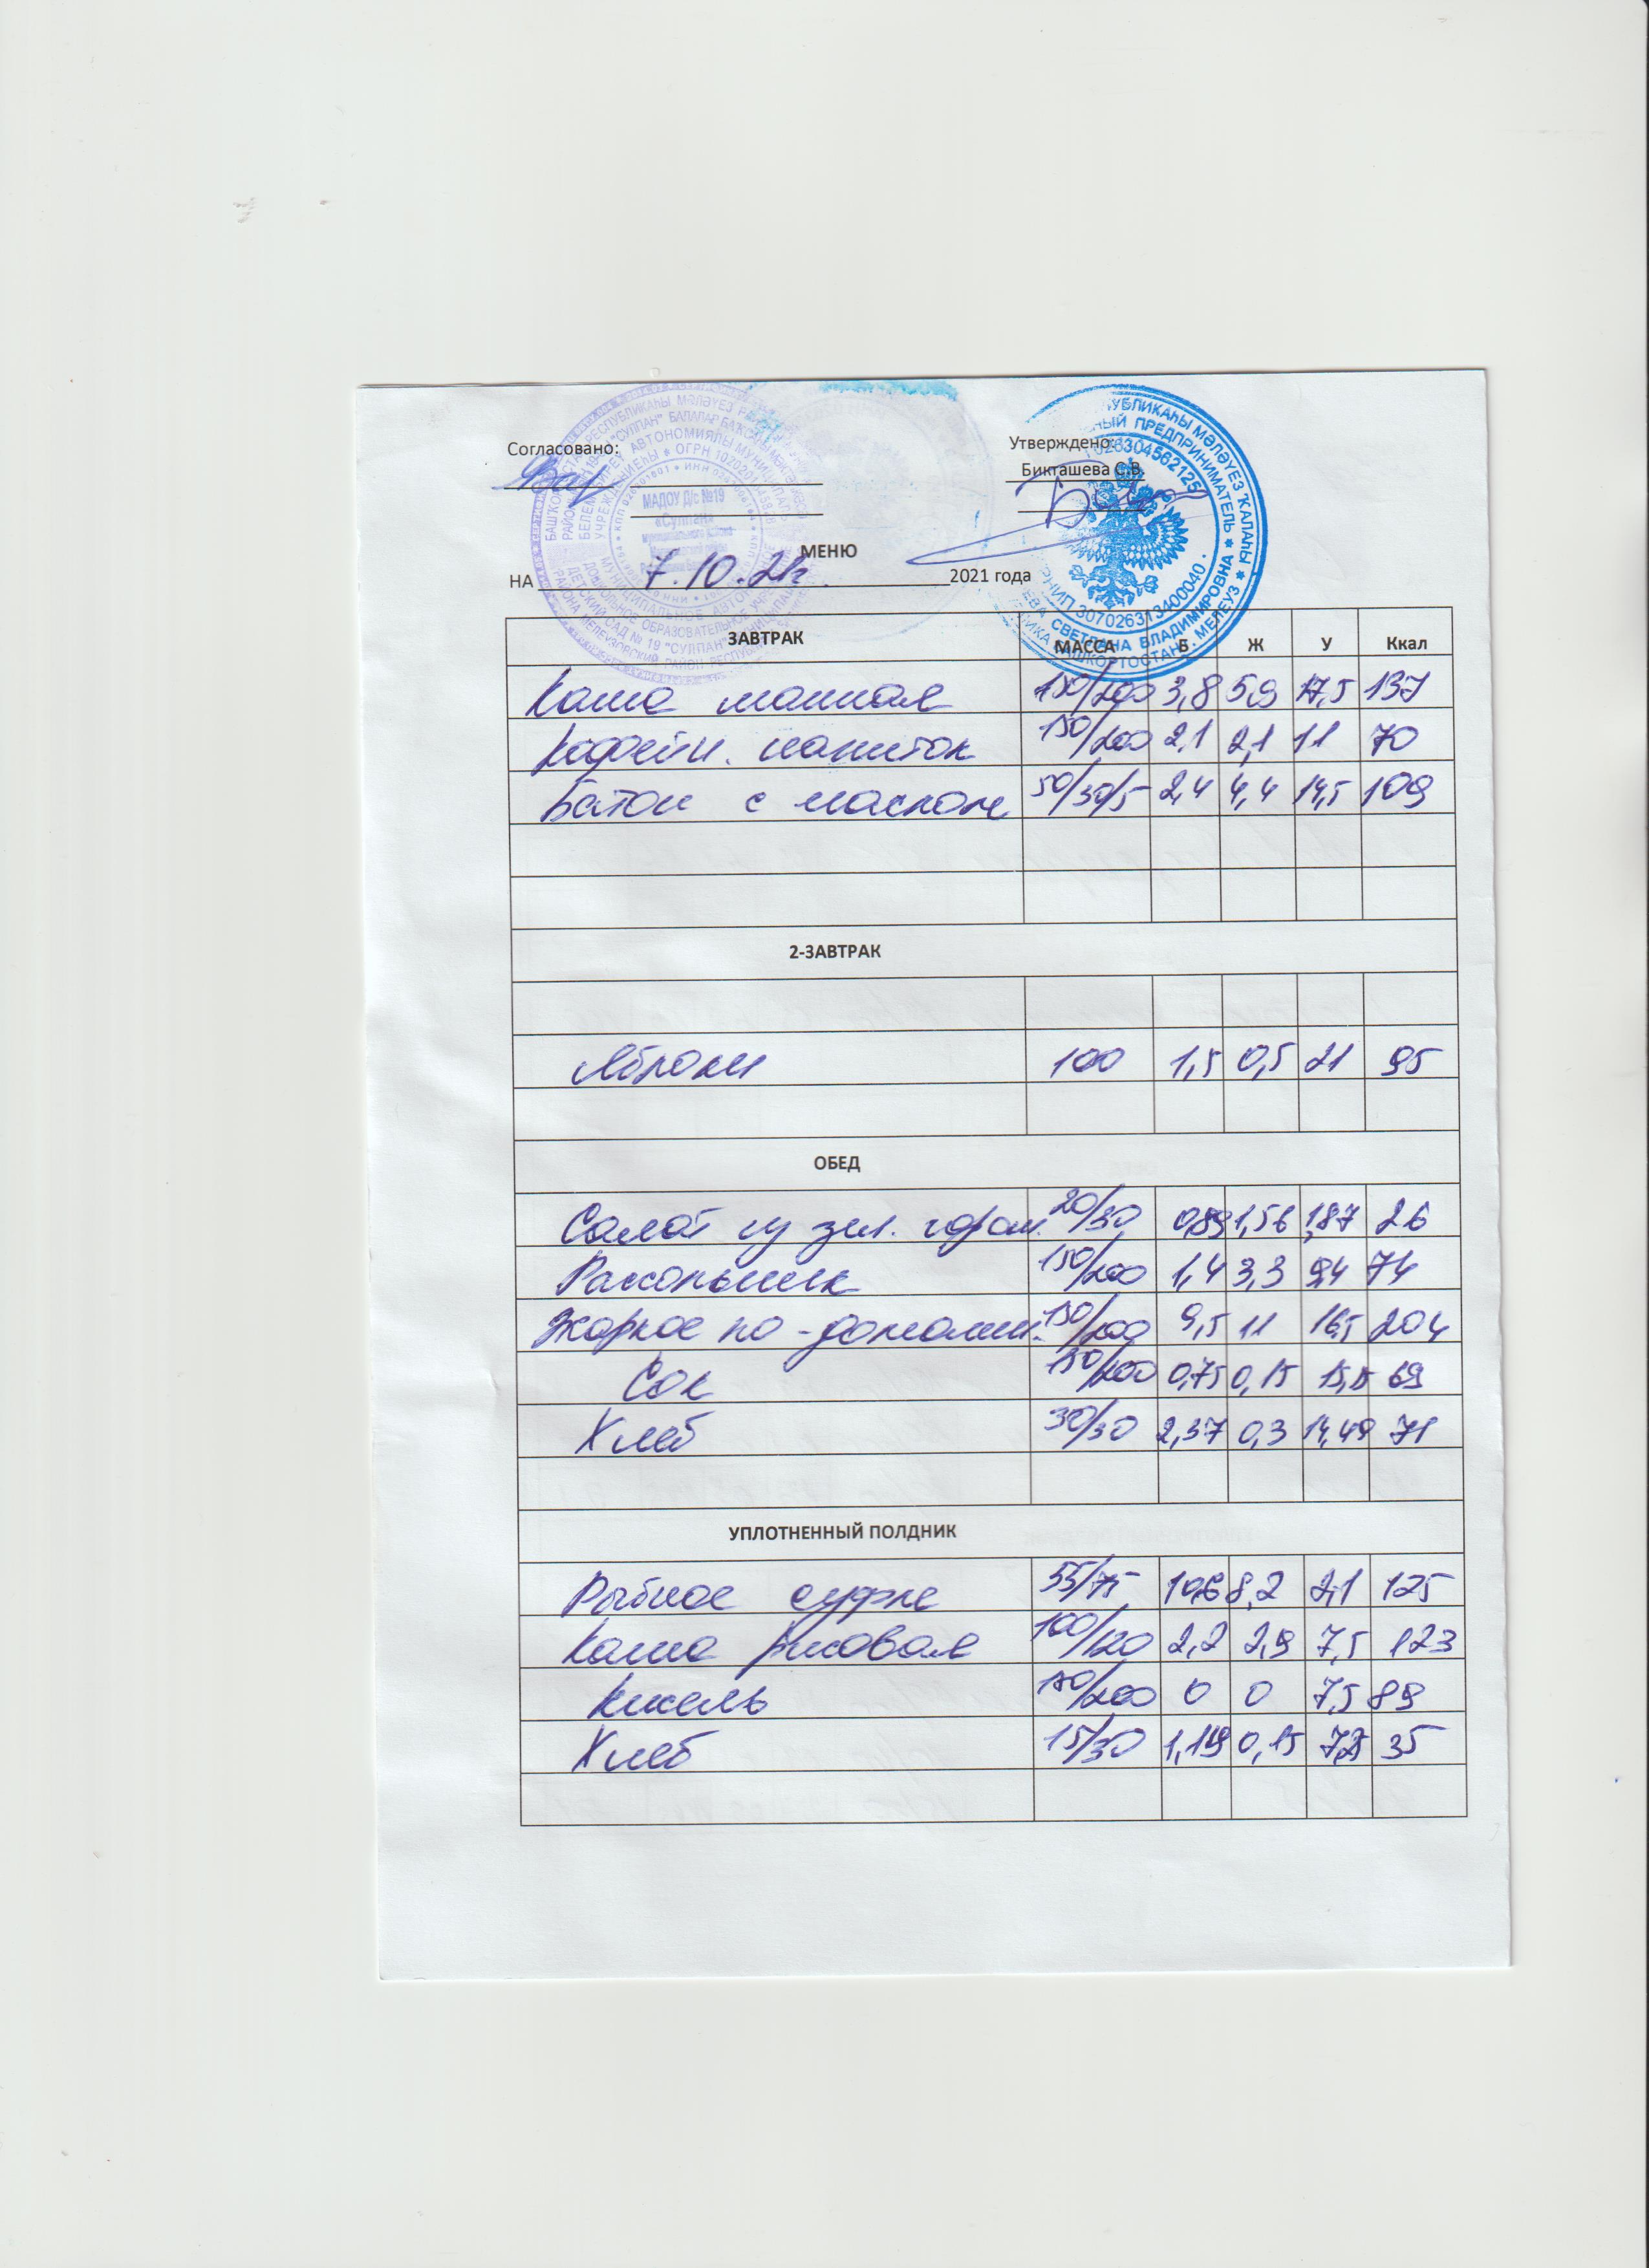 Согласовано: Утверждено:
Бикташева С.В.
МАДОУ Д/с №19
«Сулпан»
МЕНЮ
НА 7.10.21г. 2021 года
ЗАВТРАК МАССА Б Ж У Ккал
Каша манная 150/200 3,8 5,9 17,5 137
Кофейн. напиток 150/200 2,1 2,1 11 70
Батон с маслом 50/30/5 2,4 4,4 14,5 109
2-ЗАВТРАК
Яблоки 100 1,5 0,5 21 95
ОБЕД
Салат из зел. горош. 20/30 0,89 1,56 1,87 26
Рассольник 150/200 1,4 3,3 9,4 74
Жаркое по-домашн. 150/200 9,5 11 16,5 204
Сок 150/200 0,75 0,15 15,15 69
Хлеб 30/30 2,37 0,3 14,49 71
УПЛОТНЕННЫЙ ПОЛДНИК
Рыбное суфле 55/75 10,6 8,2 2,1 125
Каша рисовая 100/120 2,2 2,9 7,5 123
Кисель 180/200 0 0 7,5 89
Хлеб 15/30 1,19 0,15 7,25 35